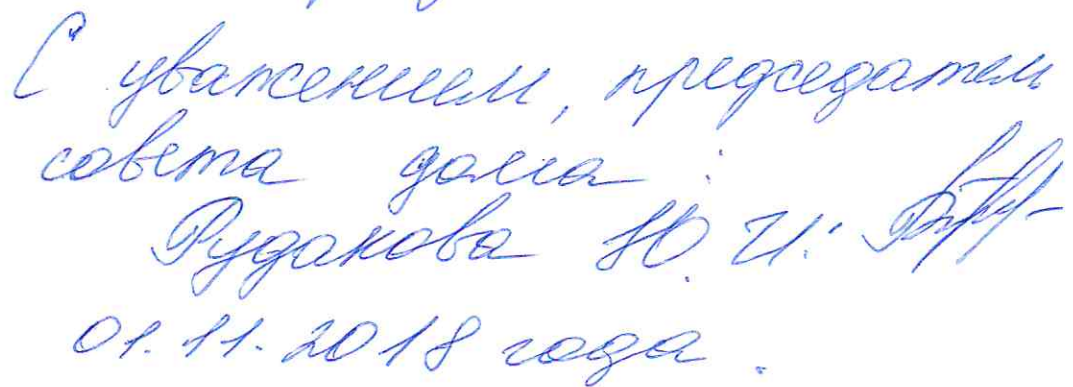 С уважением, председатель
совета дома:
Рудакова Ю. И.
01.11.2018 года.